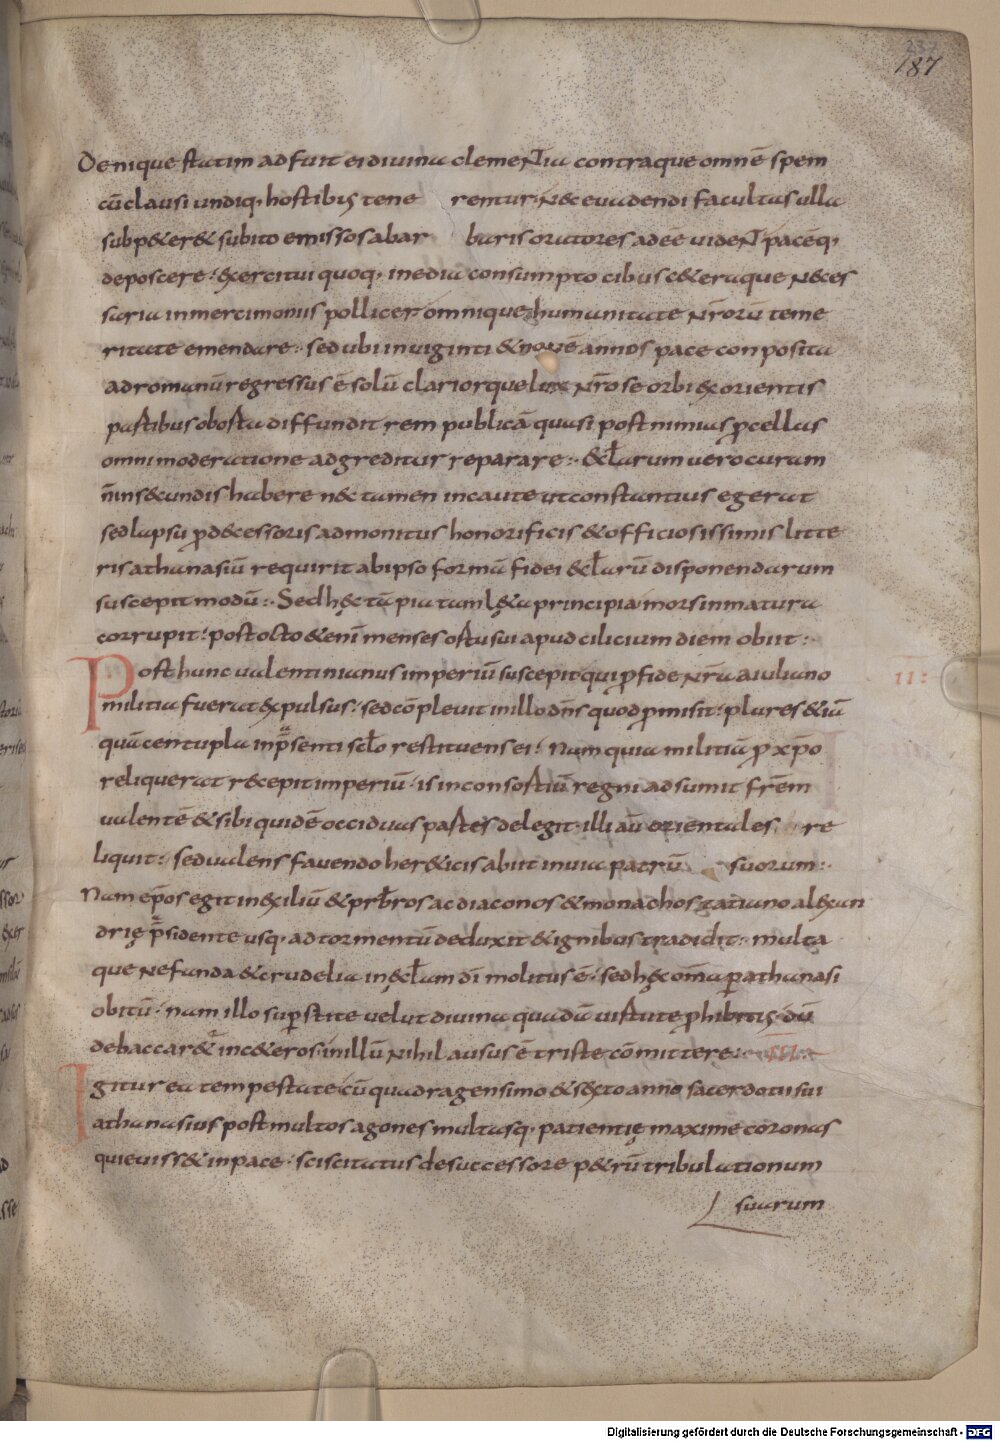 237
187
Denique statim adfuit ei divina clementia contraque omnē spem
cū clausi undiq; hostibus tene rentur. nec evadendi facultas ulla
subpeteret subito emissos a bar baris oratores adeē vident pacēq;
deposcere. exercitui quoq; inedia consumpto cibus ceteraque neces
saria in mercimoniis pollicent omnique humanitate nr̄orū teme
ritate emendare. sed ubi in viginti & novē annos pace conposita
ad romanū regressus ē solū clariorque lux nr̄o se orbi ex orientis
partibus oborta diffundit rem publicā quasi post nimias p̄cellas
omni moderatione adgreditur reparare. & eccl̄arum vero curam
n̄ in secundis habere nec tamen incaute ut constantius egerat
sed lapsu p̄decessoris admonitus honorificis & officiosissimis litte
ris athanasiū requirit ab ipso formā fidei & eccl̄arū disponendarum
suscepit modū. Sed hęc tā pia tam lęta principia mors inmatura
corrupit. post octo & enī menses ortus sui apud ciliciam diem obiit.
Post hunc valentinianus imperiū suscepit qui p̄ fide nr̄a a iuliano
militia fuerat expulsus. sed cōplevit in illo dn̄s quod p̄misit. plures etiā
quā centupla in p̄senti sc̄lo restituens ei. Nam quia militiā p̄ xp̄o
reliquerat recepit imperiū. is in consortiū regni adsumit frēm
valentē & sibi quidē occiduas partes delegit. illi aū orientales re
liquit. sed valens favendo hereticis abiit in via patrū suorum.
Nam ep̄os egit in exiliū & prb̄ros ac diaconos & monachos tatiano alexan
drię p̄sidente usq; ad tormentū deduxit & ignibus tradidit. multa
que nefanda & crudelia in eccl̄am dī molitus ē. sed hęc om̄a p̄ athanasi
obitū. nam illo sup̄stite velut divina quadā virtute p̄hibitus. dū
debaccaret in ceteros. in illū nihil ausus ē triste cōmittere. III.
II.
Igitur ea tempestate cū quadragensimo & sexto anno sacerdotii sui
athanasius post multos agones multasq; patientię maximē coronas
quievisset in pace. sciscitatus de successore p̄ & erū tribulationum
suarum
Digitalisierung gefördert durch die Deutsche Forschungsgemeinschaft - DFG